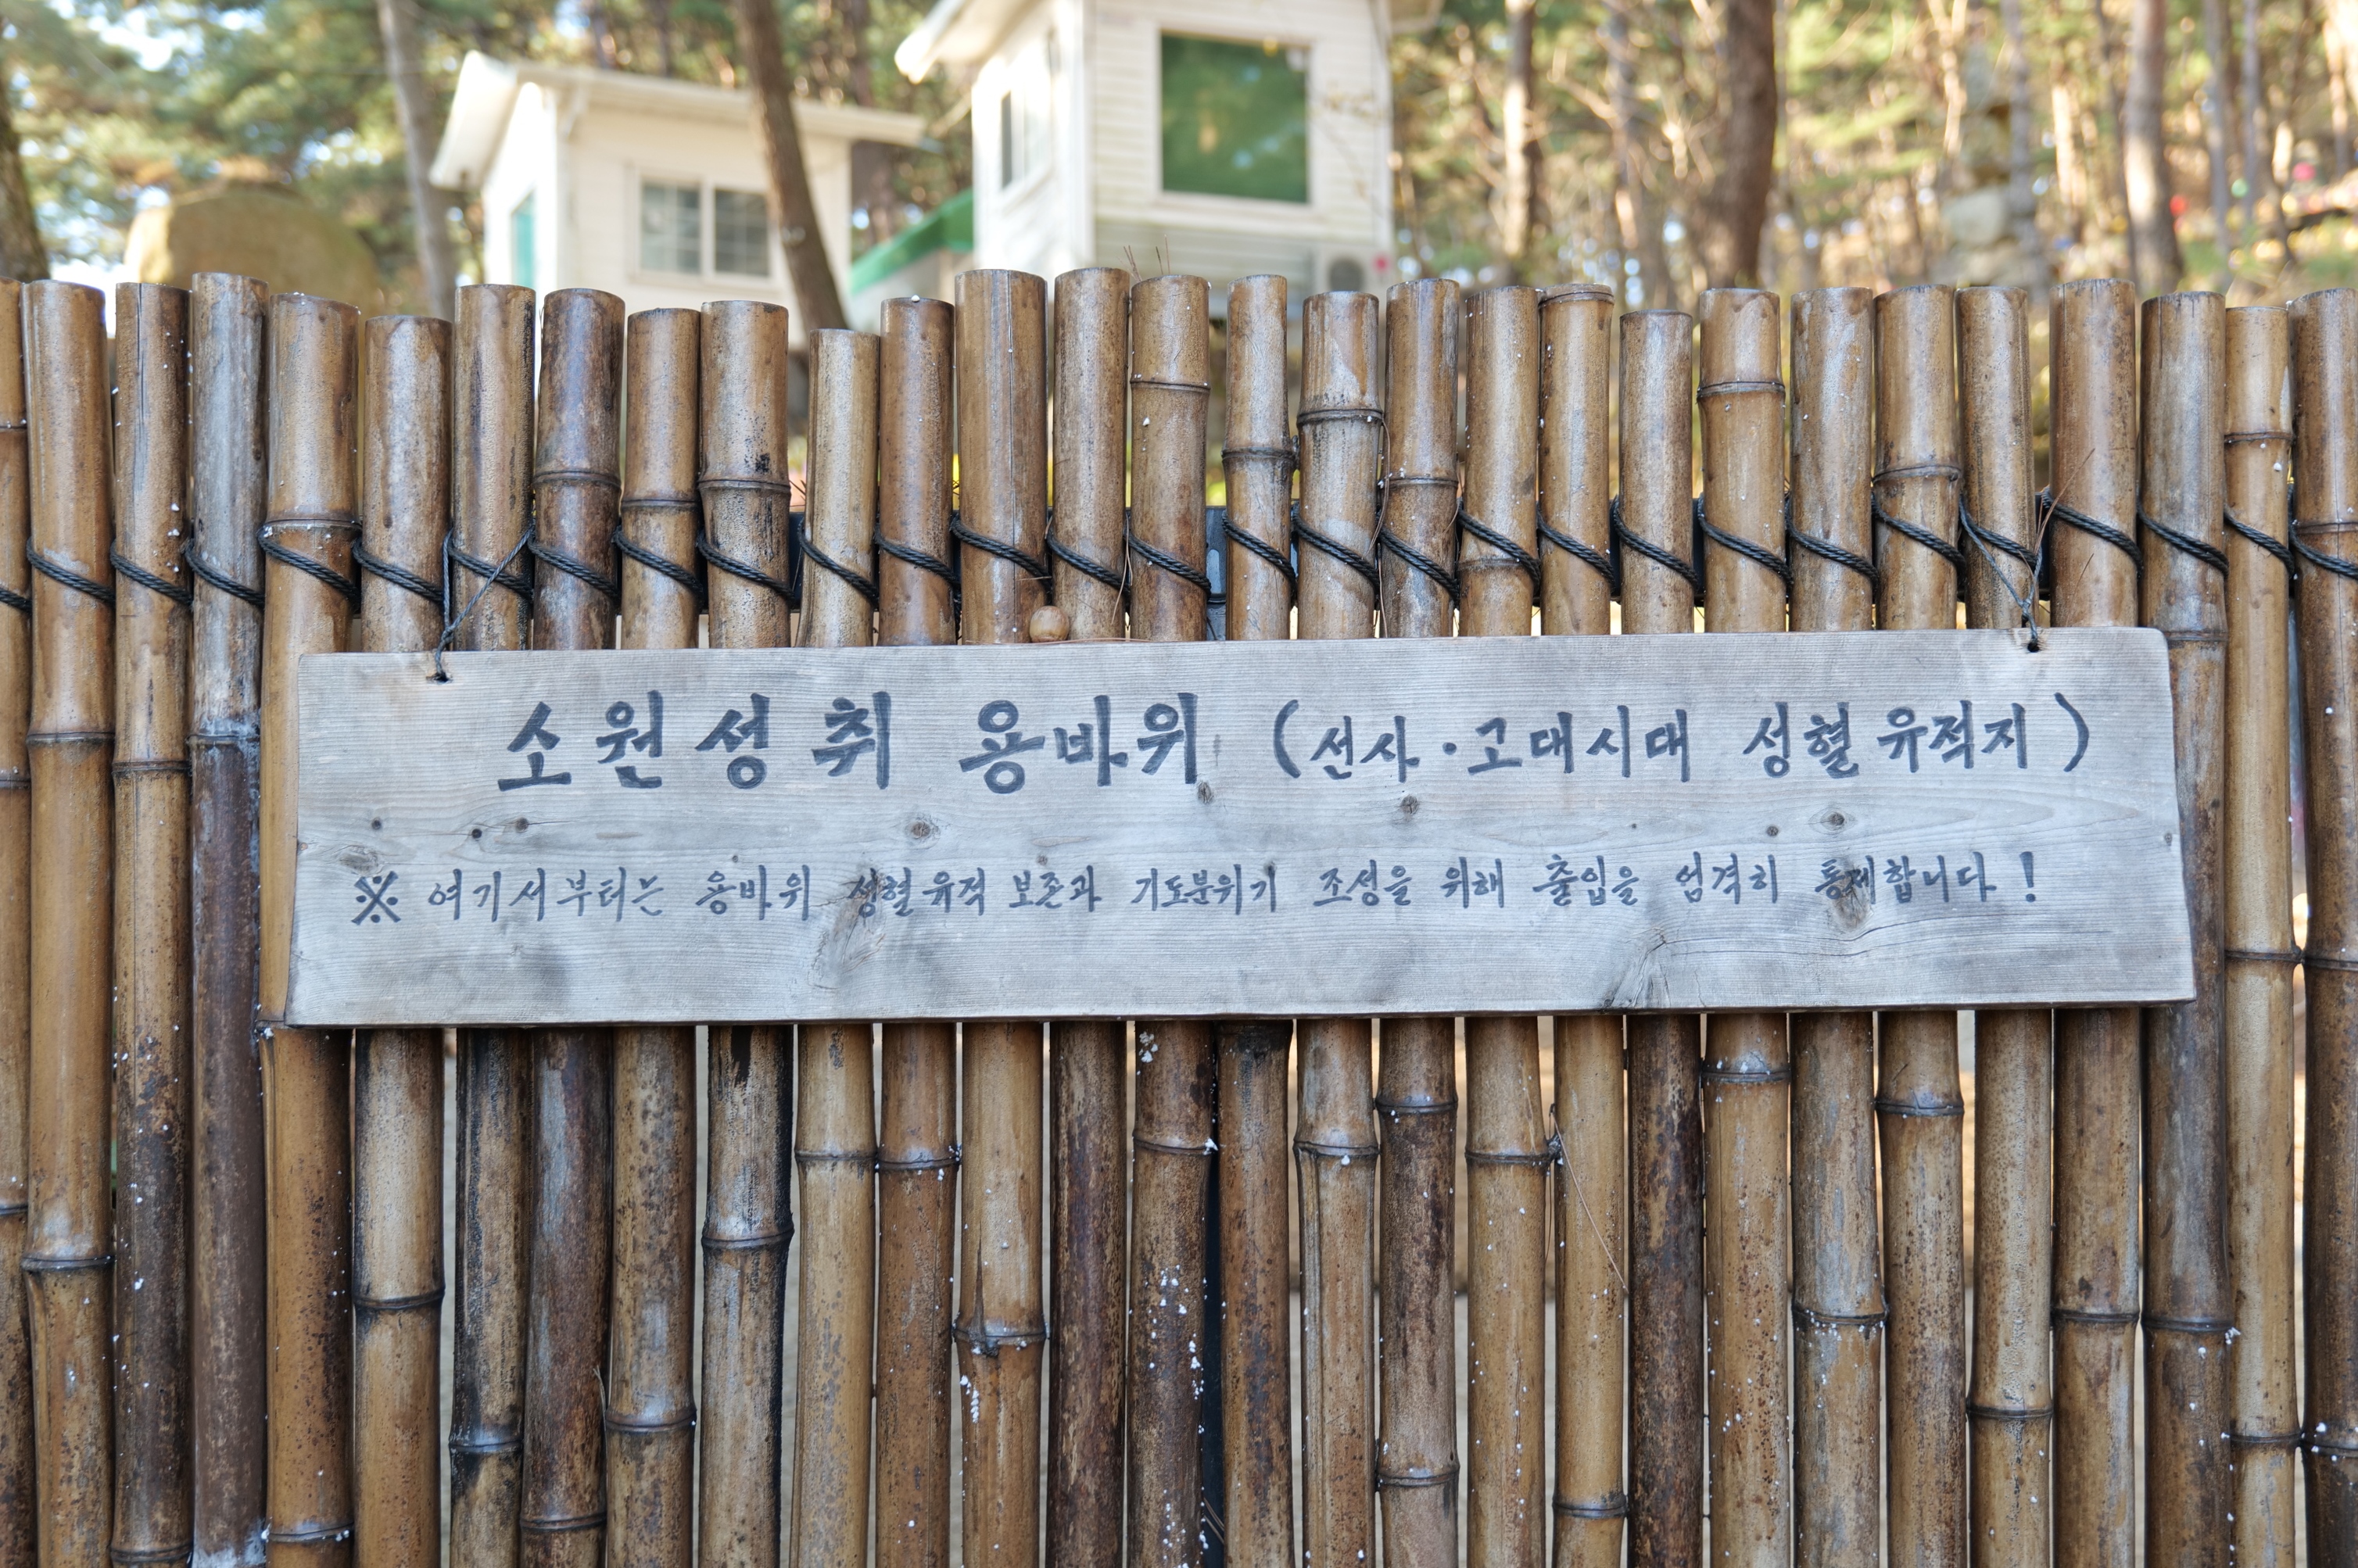 소원성취 용바위 (선사·고대시대 성혈유적지)
※ 여기서부터는 용바위 성혈유적 보존과 기도분위기 조성을 위해 출입을 엄격히 통제합니다!